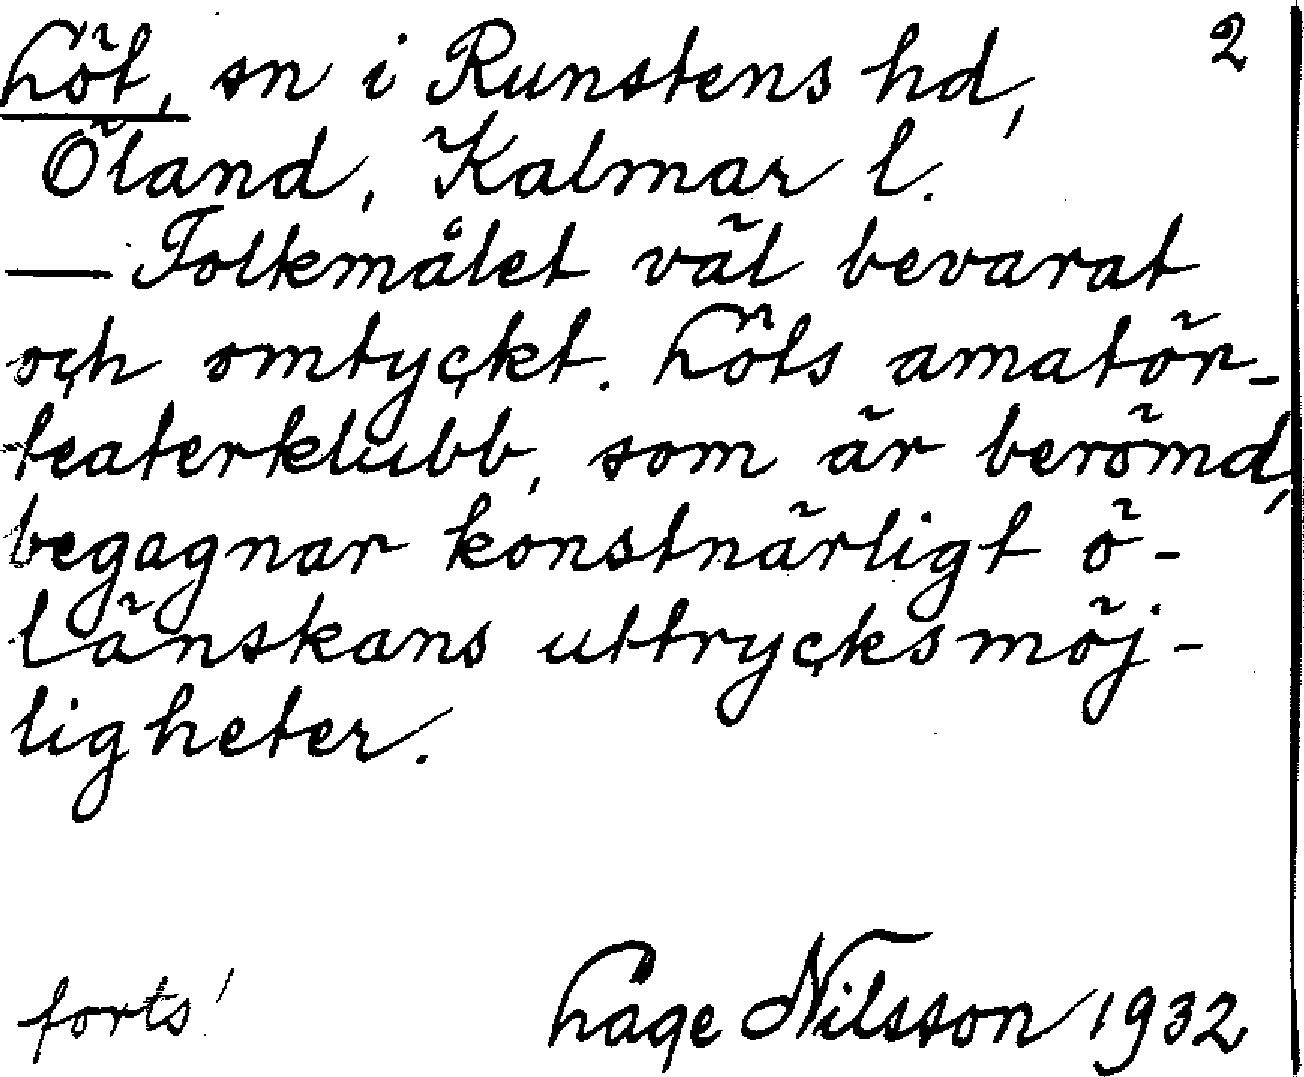 Löt, sn i Runstens hd, 2
Öland, Kalmar l.
— Folkmålet väl bevarat
och omtyckt. Löts amatör-
teaterklubb, som är berömd,
begagnar konstnärligt ö-
länskans uttrycksmöj-
ligheter.
forts! Låge Nilsson 1932